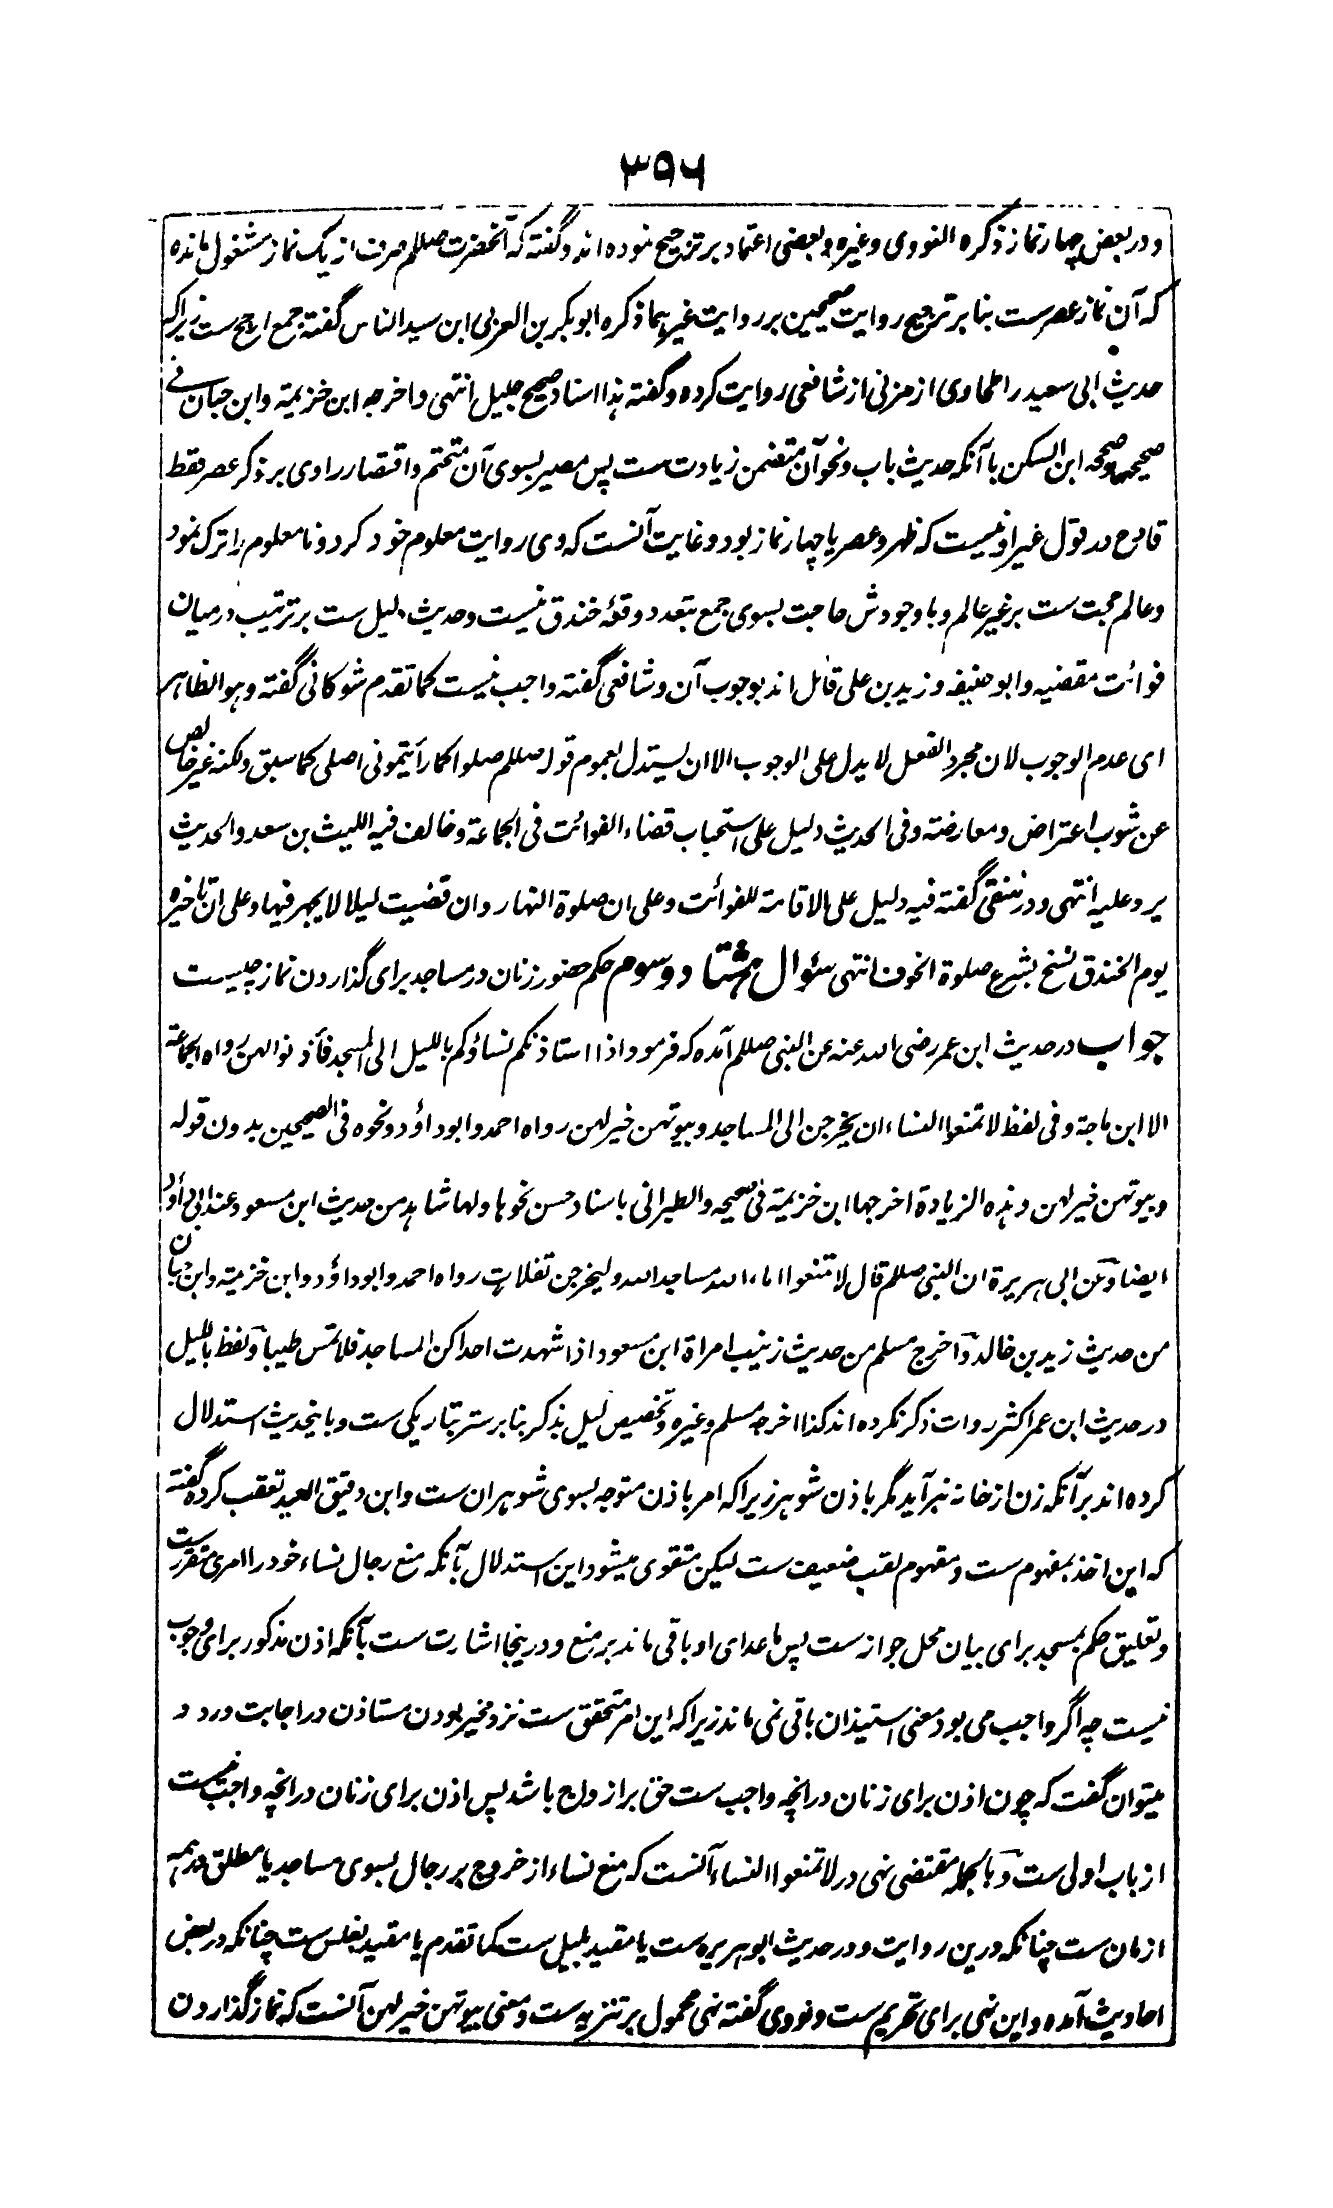 ۳۹۶
و در بعض چهار نماز ذکره النووی وغیره و بعضی اعتماد بر ترجیح نموده اند و گفته که آنحضرت صللم صرف از یک نماز مشغول مانده
که آن نماز عصرست بنا بر ترجیح روایت صحیحین بر روایت غیرهما ذکره ابوبکر بن العربی ابن سید الناس گفته جمع ارجح ست زیراکه
حدیث ابی سعید را طحاوی از مزنی از شافعی روایت کرده و گفته هذا اسناد صحیح جلیل انتهی واخرجه ابن خزیمة وابن حبان فے
صحیحهما وصححه ابن السکن باآنکه حدیث باب و نحو آن متضمن زیادت ست پس مصیر بسوی آن متحتم واقتصار راوی بر ذکر عصر فقط
قادح در قول غیر او نیست که ظهر وعصر یا چهار نماز بود و غایت آنست که وی روایت معلوم خود کرد و نامعلوم را ترک نمود
وعالم حجت ست بر غیر عالم و باوجودش حاجت بسوی جمع بتعدد وقعهٔ خندق نیست وحدیث دلیل ست بر ترتیب درمیان
فوائت مقضیه وابو حنیفه و زید بن علی قائل اند بوجوب آن و شافعی گفته واجب نیست کما تقدم شوکانی گفته وهو الظاهر
ای عدم الوجوب لان مجرد الفعل لا یدل علی الوجوب الا ان یستدل بعموم قوله صللم صلوا کما رأیتمونی اصلی کما سبق ولکنه غیر خالص
عن شوب اعتراض ومعارضته وفی الحدیث دلیل علی استحباب قضاء الفوائت فی الجماعة وخالف فیه اللیث بن سعد والحدیث
یرد علیه انتهی و در منتقی گفته فیه دلیل علی الاقامة للفوائت وعلی ان صلوة النهار وان قضیت لیلا لا یجهر فیها وعلی ان تاخیره
یوم الخندق نسخ بشرع صلوة الخوف انتهی سئوال هشتاد وسوم حکم حضور زنان در مساجد برای گذاردن نماز چیست
جواب در حدیث ابن عمر رضی الله عنه عن النبی صللم آمده که فرمود اذا استاذنکم نساؤکم باللیل الی المسجد فأذنوا لهن رواه الجماعة
الا ابن ماجة وفی لفظ لا تمنعوا النساء ان یخرجن الی المساجد وبیوتهن خیر لهن رواه احمد وابو داؤد ونحوه فی الصحیحین بدون قوله
وبیوتهن خیر لهن وهذه الزیادة اخرجها ابن خزیمة فی صحیحه والطبرانی باسناد حسن نحوها ولها شاهد من حدیث ابن مسعود عند ابی داؤد
ایضا وعن ابی هریرة ان النبی صللم قال لا تمنعوا اماء الله مساجد الله ولیخرجن تفلات رواه احمد وابو داؤد وابن خزیمة وابن حبان
من حدیث زید بن خالد واخرج مسلم من حدیث زینب امراة ابن مسعود اذا شهدت احداکن المساجد فلا تمس طیبا ولفظ باللیل
در حدیث ابن عمر اکثر روات ذکر نکرده اند کذا اخرجه مسلم وغیره وتخصیص لیل بذکر بنا بر ستر بتاریکی ست و باینحدیث استدلال
کرده اند برآنکه زن از خانه نبرآید مگر باذن شوهر زیراکه امر باذن متوجه بسوی شوهران ست وابن دقیق العید تعقب کرده گفته
که این اخذ بمفهوم ست و مفهوم لقب ضعیف ست لیکن متقوی میشود این استدلال بآنکه منع رجال نساء خود را امری متقررست
و تعلیق حکم بمسجد برای بیان محل جوازست پس ماعدای او باقی ماند بر منع و درینجا اشارت ست بآنکه اذن مذکور برای وجوب
نیست چه اگر واجب می بود معنی استیذان باقی نمی ماند زیراکه این امر متحقق ست نزد مخیر بودن مستاذن در اجابت ورد و
میتوان گفت که چون اذن برای زنان درانچه واجب ست حق بر ازواج باشد پس اذن برای زنان درانچه واجب نیست
از باب اولی ست وبالجمله مقتضی نهی در لا تمنعوا النساء آنست که منع نساء از خروج بر رجال بسوی مساجد یا مطلق در همه
ازمان ست چنانکه درین روایت و در حدیث ابوهریره ست یا مقید بلیل ست کما تقدم یا مقید بغلس ست چنانکه در بعض
احادیث آمده و این نهی برای تحریم ست و نووی گفته نهی محمول بر تنزیه ست و معنی بیوتهن خیر لهن آنست که نماز گذاردن